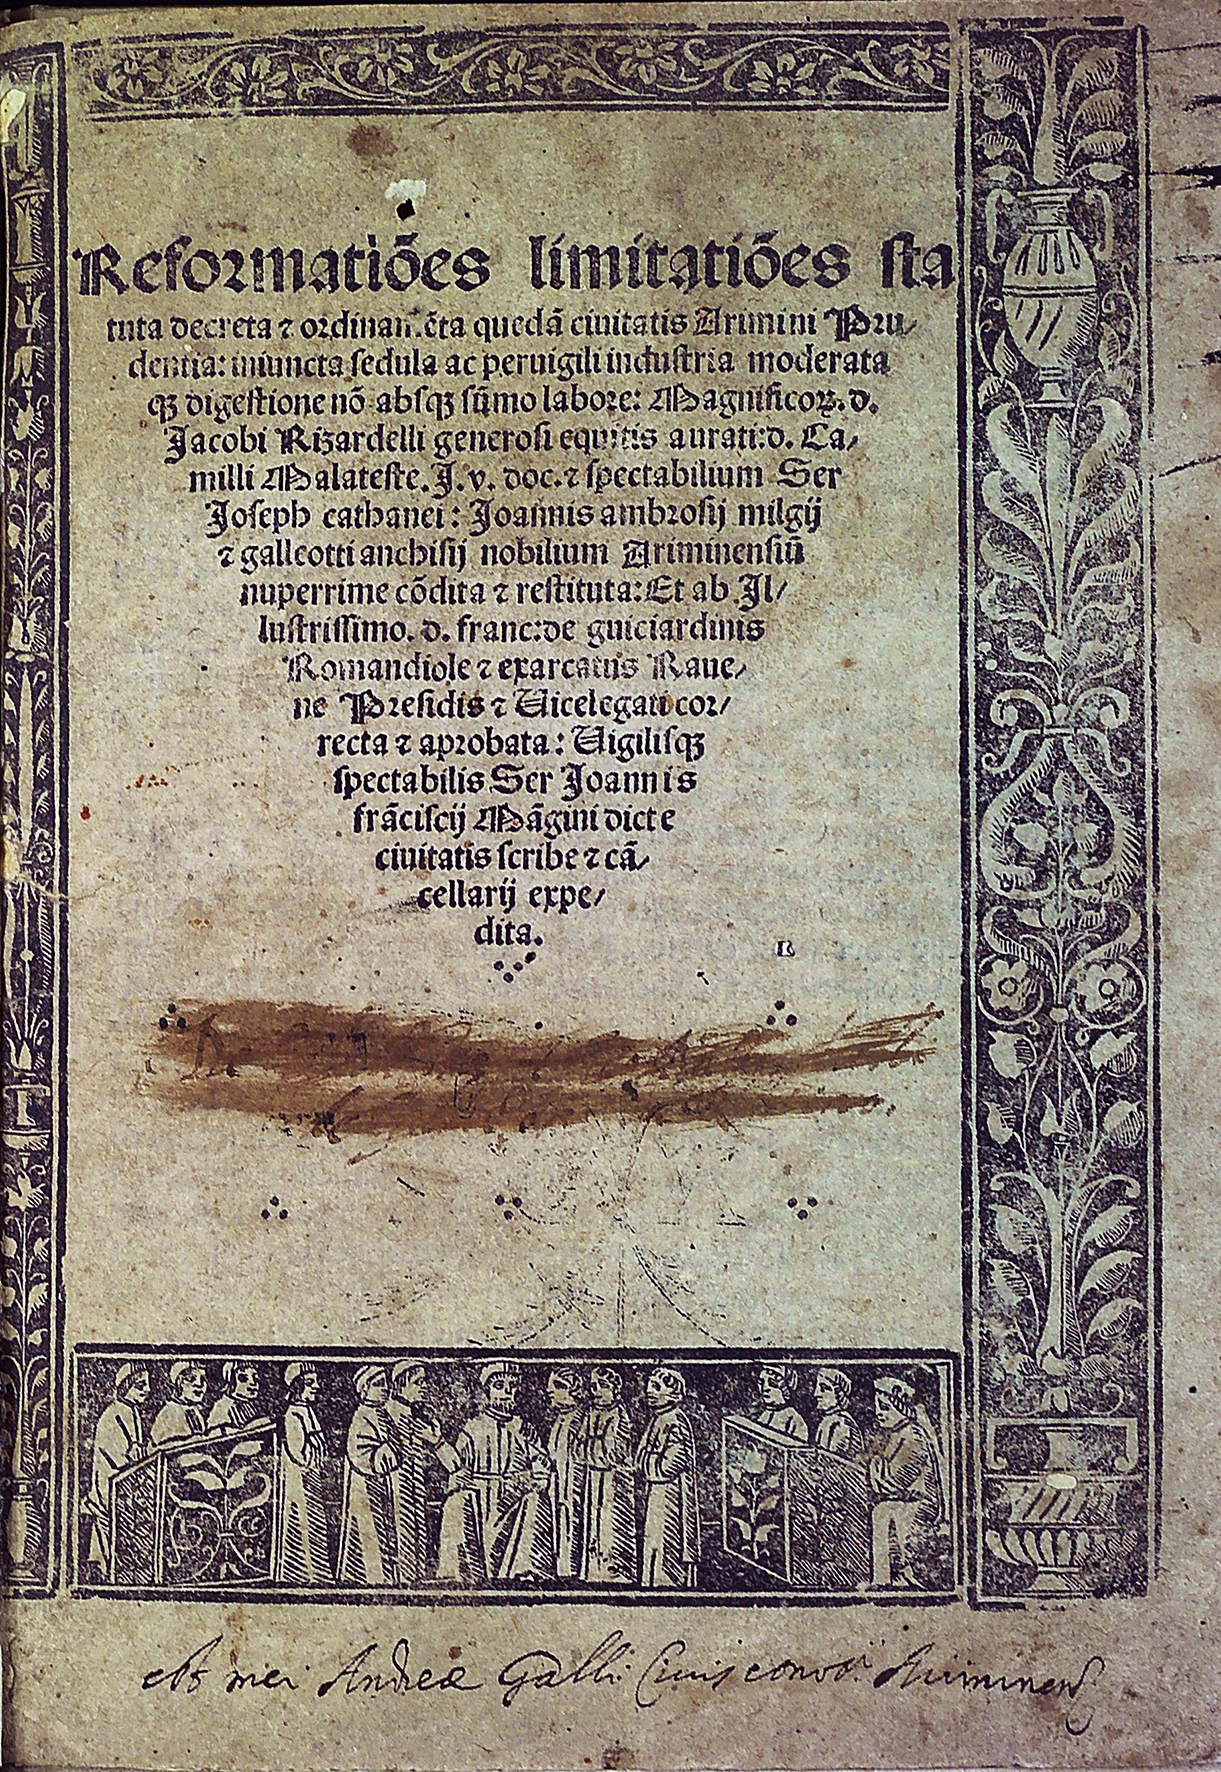 Reformatiões limitatiões sta
tuta decreta ⁊ ordinamẽta quedã ciuitatis Arimini Pru⸗
dentia: iniuncta sedula ac peruigili industria moderata
qꝫ digestione nõ absqꝫ sũmo labore: Magnificoꝝ. d.
Jacobi Rizardelli generosi equitis aurati: d. Ca⸗
milli Malateste. J. v. doc. ⁊ spectabilium Ser
Joseph cathanei: Joannis ambrosij milgij
⁊ galleotti anchisij nobilium Ariminensiũ
nuperrime cõdita ⁊ restituta: Et ab Jl⸗
lustrissimo. d. franc: de guiciardinis
Romandiole ⁊ exarcatus Raue⸗
ne Presidis ⁊ Vicelegati cor⸗
recta ⁊ aprobata: Vigilisqꝫ
spectabilis Ser Joannis
frãciscij Mãgini dicte
ciuitatis scribe ⁊ cã⸗
cellarij expe⸗
dita.
L
mei Andreæ Galli Ciuis